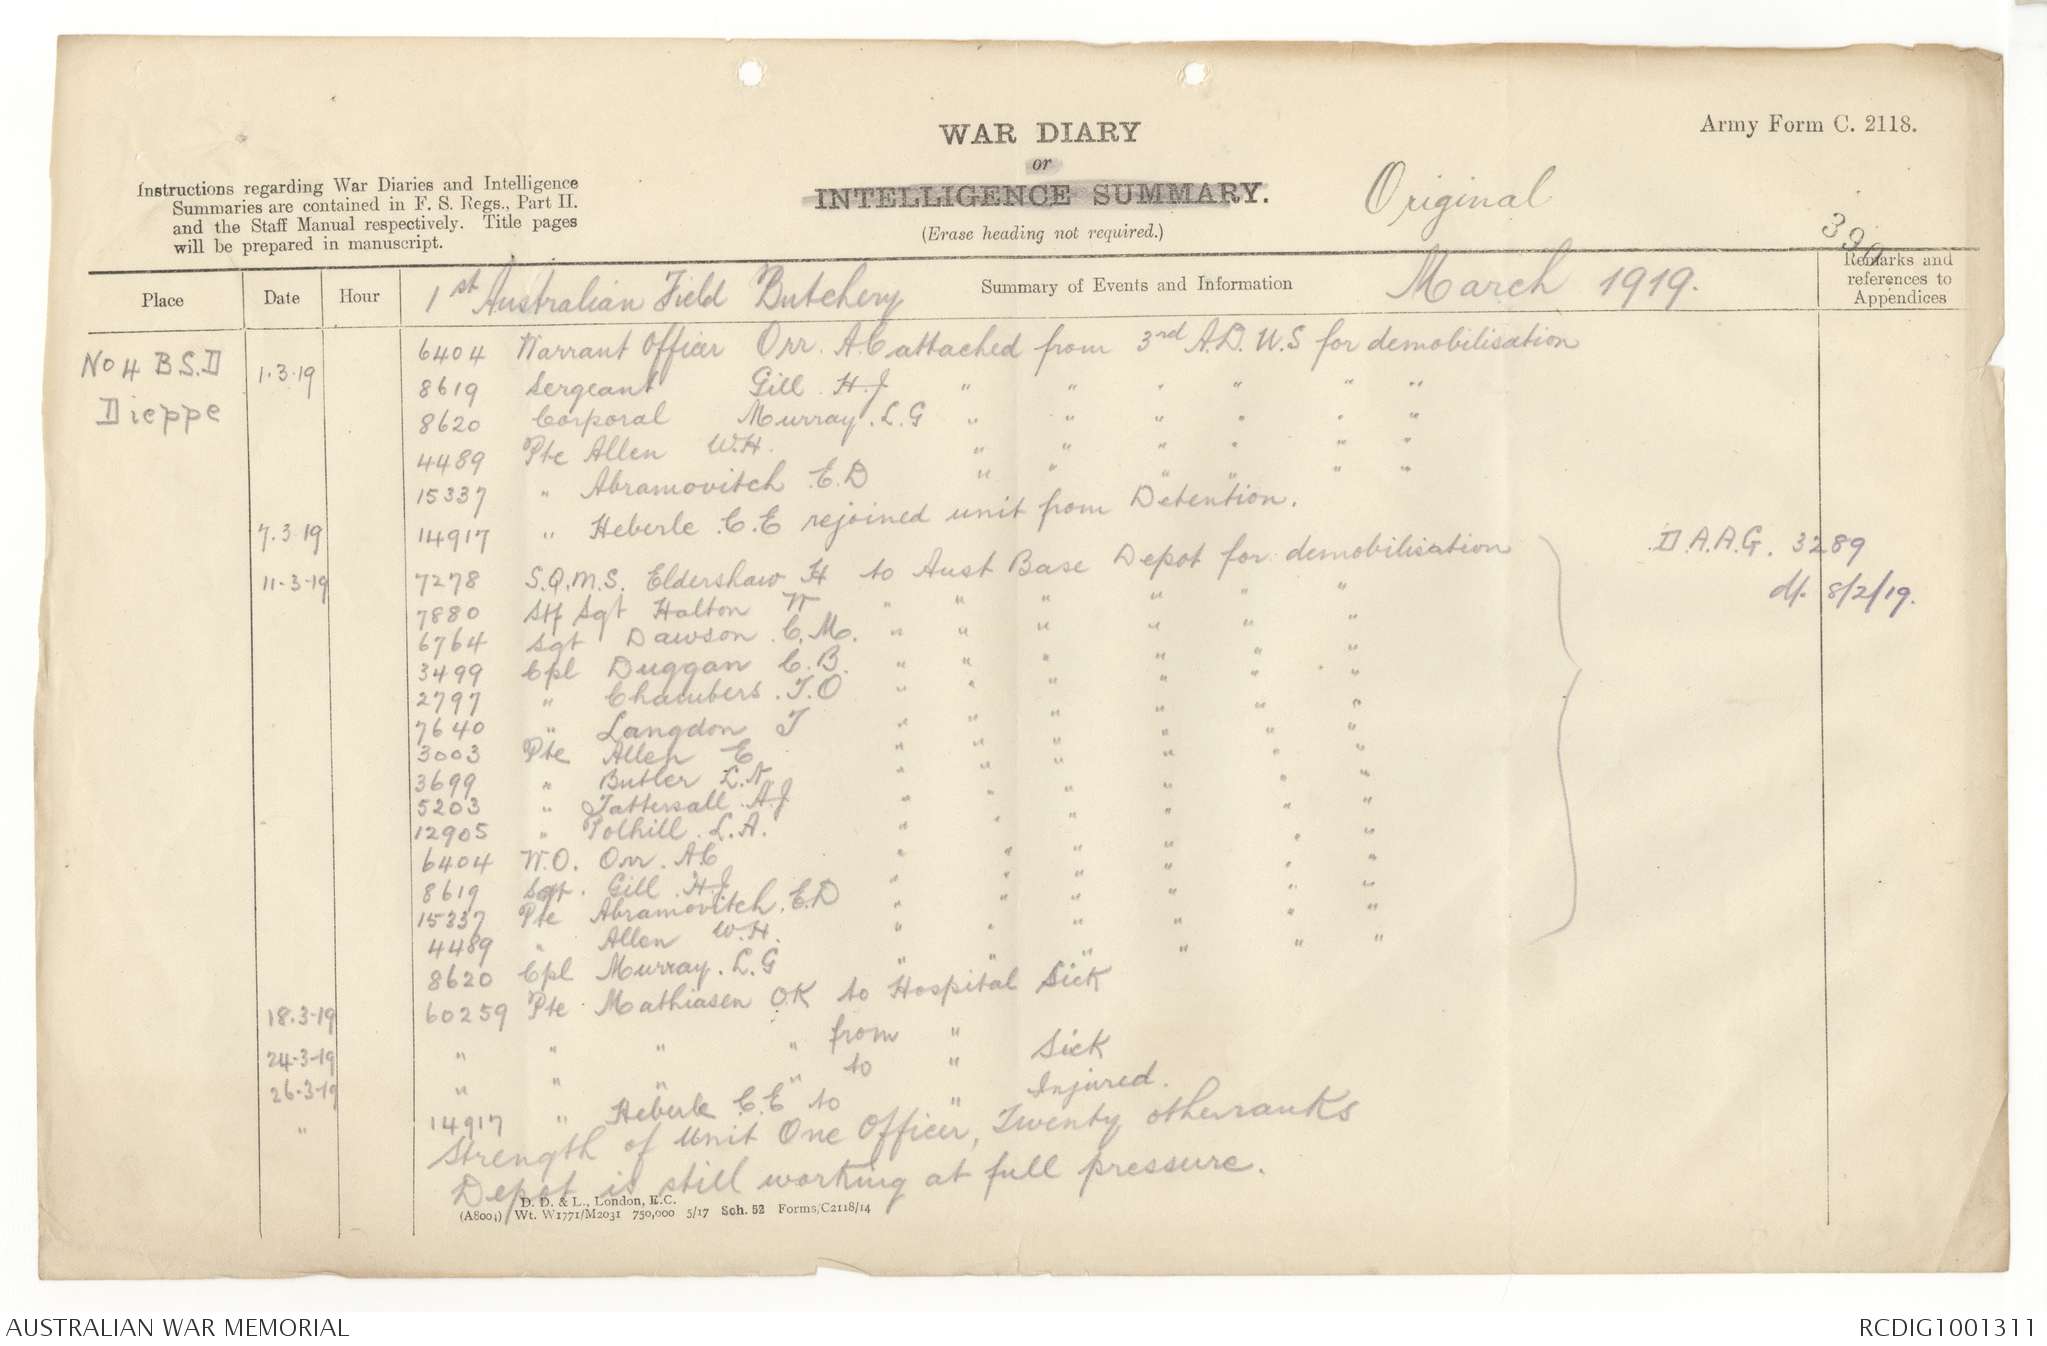 WAR DIARY
or
INTELLIGENCE SUMMARY.
(Erase heading not required.)
Army Form C. 2118.
Instructions regarding War Diaries and Intelligence
Summaries are contained in F. S. Regs., Part II.
and the Staff Manual respectively. Title pages
will be prepared in manuscript.
Original
Place Date Hour 1st Australian Field Butchery Summary of Events and Information March 1919. Remarks and references to Appendices
No 4 B.S.D 1.3.19 6404 Warrant Officer Orr. A.C attached from 3rd A.D.U.S for demobilisation
Dieppe 8619 Sergeant Gill H.J " " " " " "
8620 Corporal Murray. L.G " " " " " "
4489 Pte Allen W.H. " " " " " "
15337 " Abramovitch E.D " " " " " "
7.3.19 14917 " Heberle C.E rejoined unit from Detention.
11-3-19 7278 S.Q.M.S. Eldershaw H to Aust Base Depot for demobilisation D.A.A.G. 3289
7880 Stf Sgt Halton W " " " " " " d/. 8/2/19.
6764 Sgt Dawson. C.M. " " " " " "
3499 Cpl Duggan C.B. " " " " " "
2797 " Chambers. T.O " " " " " "
7640 " Langdon T " " " " " "
3003 Pte Allen E " " " " " "
3699 " Butler L.N " " " " " "
5203 " Tattersall. A.J " " " " " "
12905 " Polhill. L.A. " " " " " "
6404 W.O. Orr. A.C " " " " " "
8619 Sgt. Gill. H.J " " " " " "
15337 Pte Abramovitch. E.D " " " " " "
4489 " Allen W.H. " " " " " "
8620 Cpl Murray. L.G " " " " " "
18.3-19 60259 Pte Mathiasen O.K to Hospital Sick
24-3-19 " " " " from "
26-3-19 " " " " to " Sick
" 14917 " Heberle C.E to " Injured.
Strength of Unit One Officer, Twenty otherranks
Depot is still working at full pressure.
D. D. & L., London, E.C.
(A8004) Wt. W1771/M2031 750,000 5/17 Sch. 52 Forms/C2118/14
AUSTRALIAN WAR MEMORIAL
RCDIG1001311